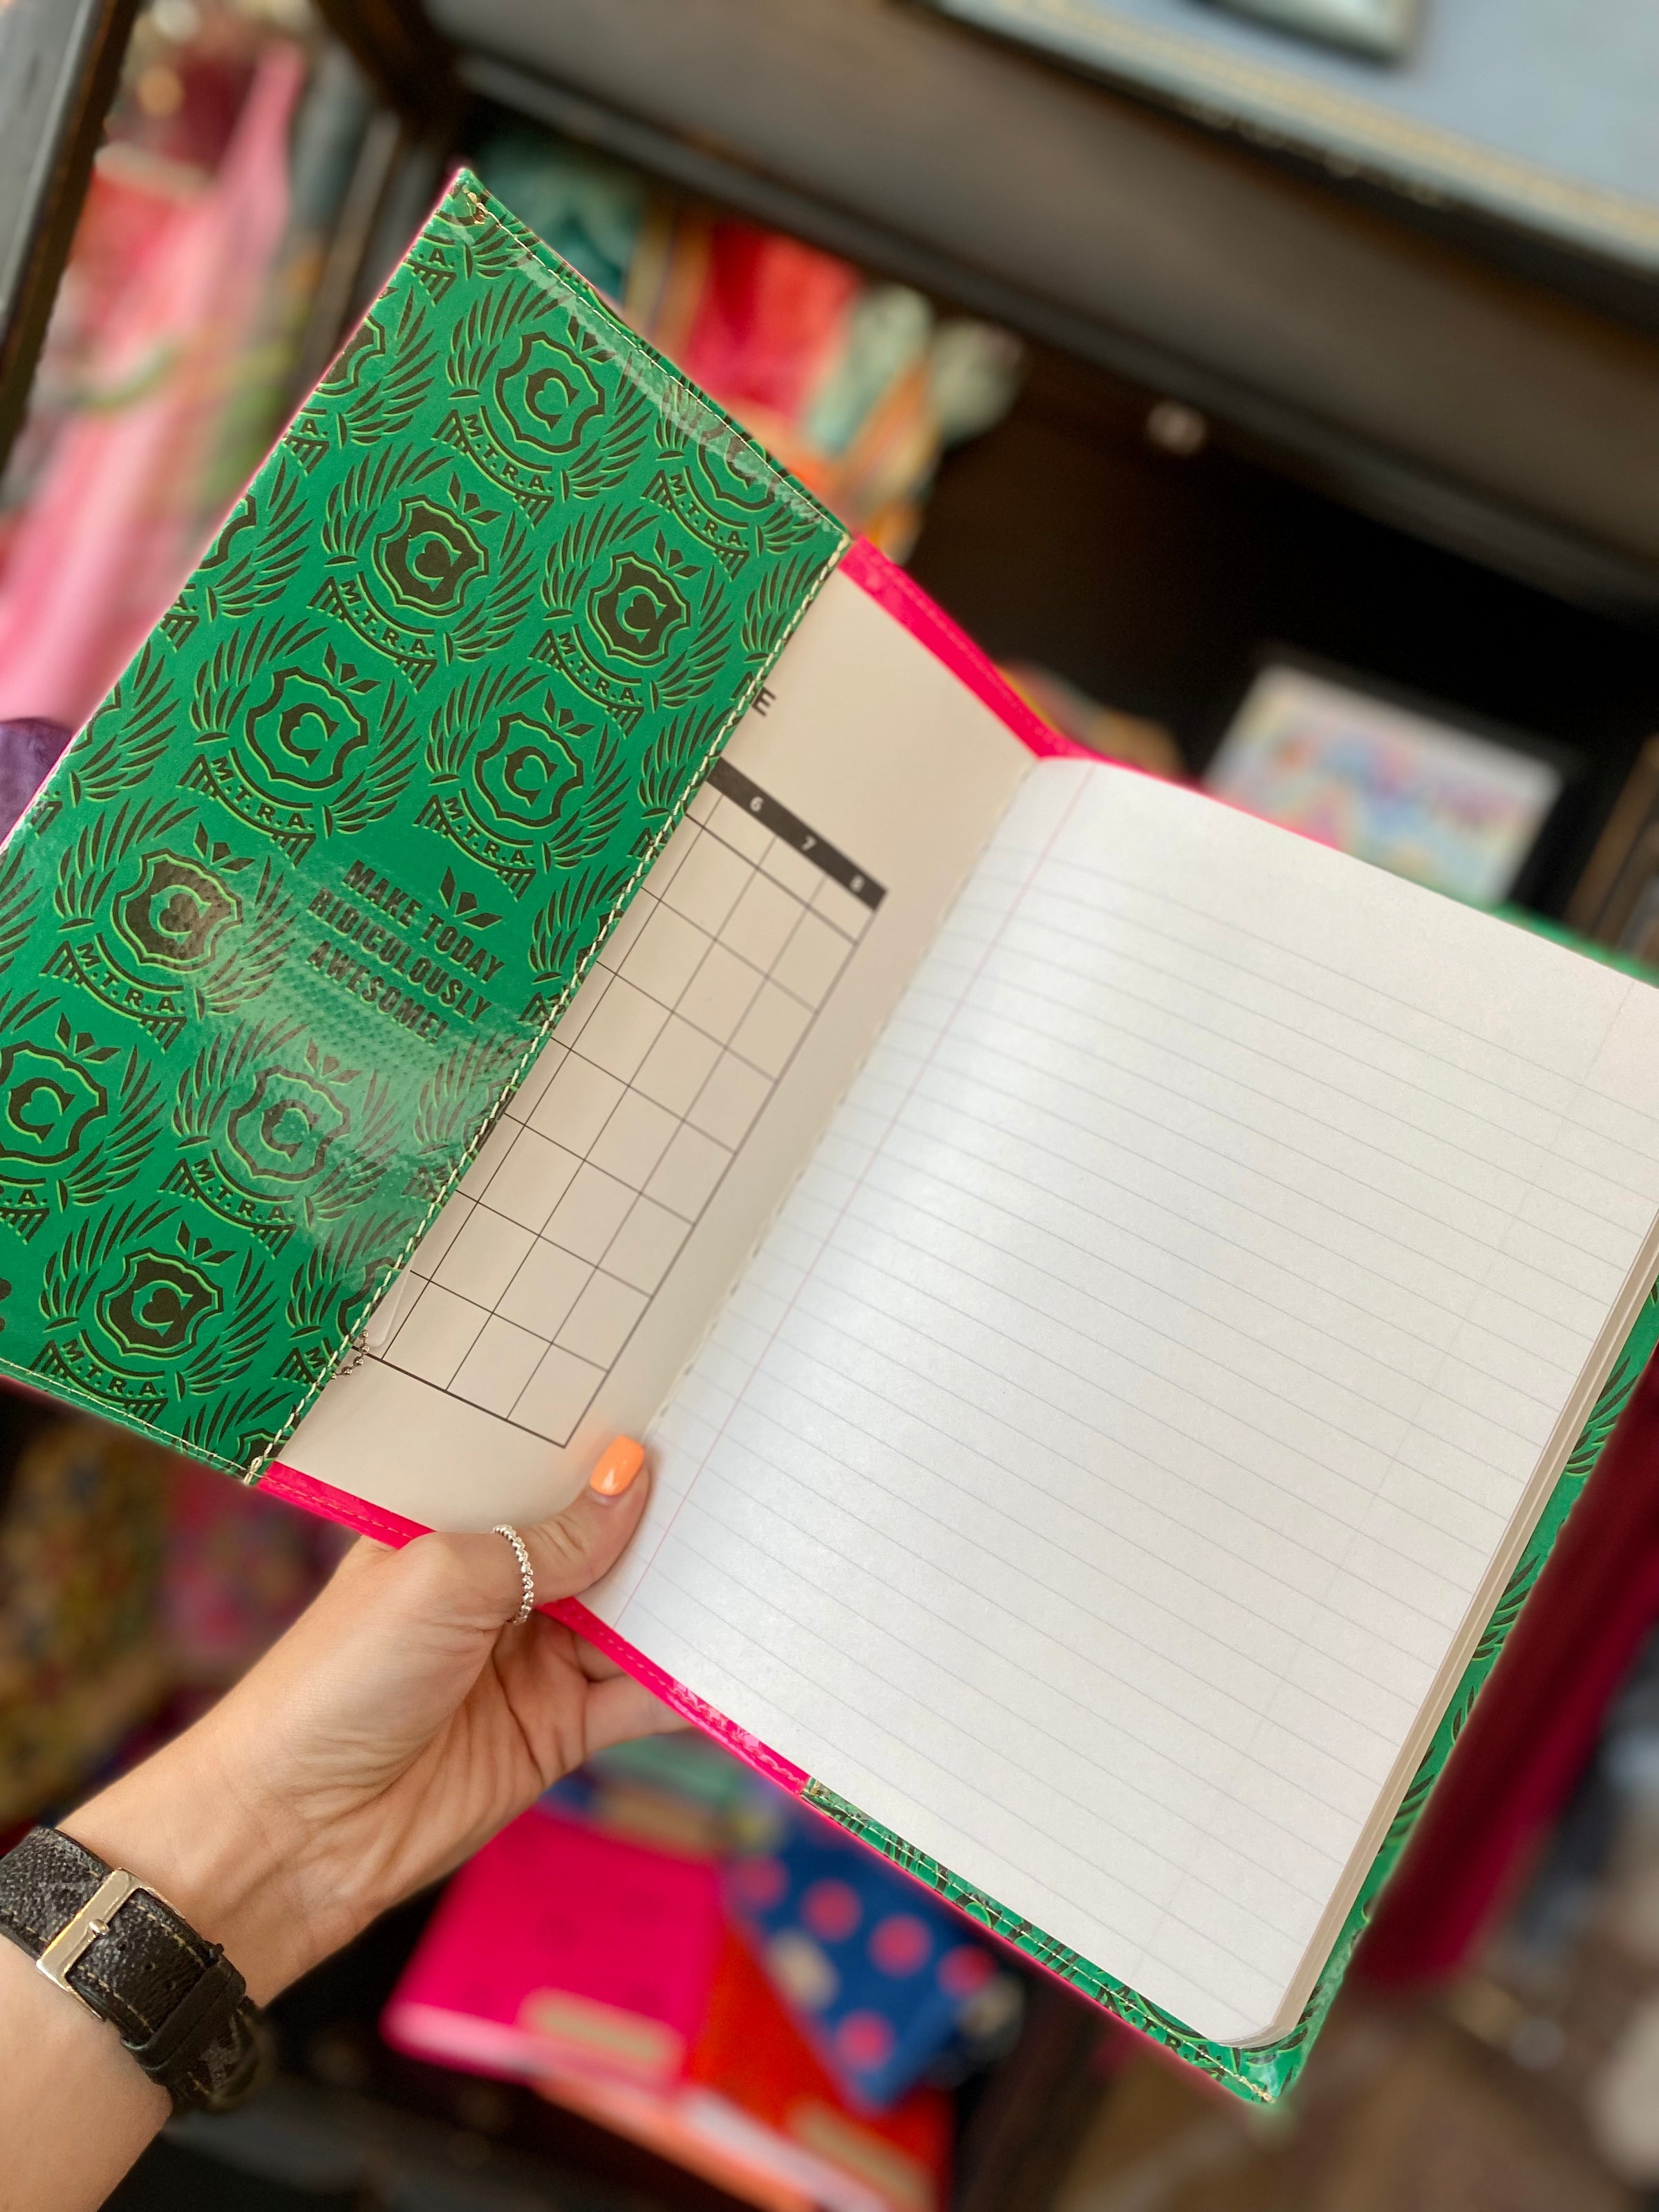 C
M.T.R.A.
C
M.T.R.A.
M.T.R.A.
C
M.T.R.A.
C
M.T.R.A.
C
M.T.R.A.
C
M.T.R.A.
MAKE TODAY
RIDICULOUSLY
AWESOME!
C
M.T.R.A.
C
C
M.T.R.A.
C
M.T.R.A.
E
6 7 8